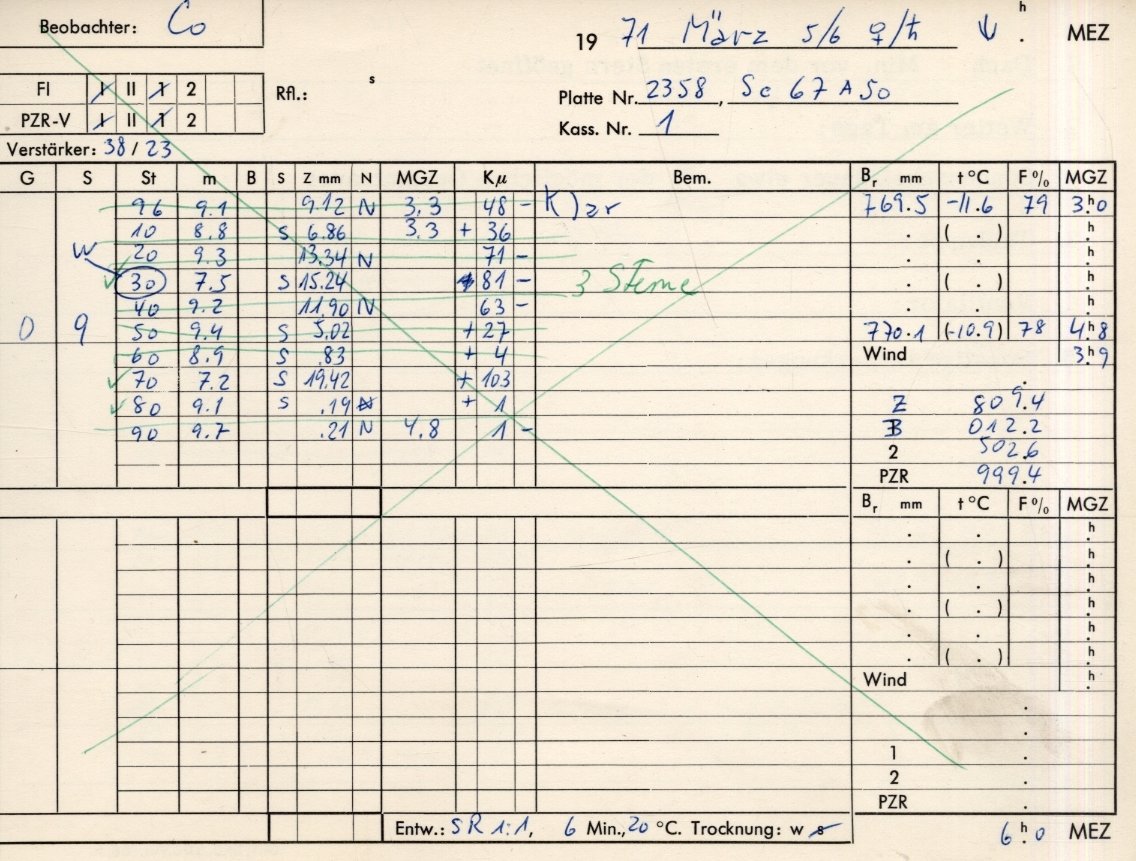 Beobachter: Co
19 71 März 5/6 ♀/♄ h . MEZ
FI I II 1 2 Rfl.: s
Platte Nr. 2358, Sc 67 A 50
PZR-V I II 1 2
Kass. Nr. 1
Verstärker: 38 / 23
G S St m B S Z mm N MGZ Kμ Bem. Br mm t °C F % MGZ
96 9.1 9.12 N 3.3 48 - K)zr 769.5 -11.6 79 3.h0
10 8.8 S 6.86 3.3 + 36 . ( . ) .h
20 9.3 13.34 N 71 - . .h
W 30 7.5 S 15.24 81 - 3 Sterne . ( . ) .h
40 9.2 11.90 N 63 - . .h
0 9 50 9.4 S 5.02 + 27 770.1 (-10.9) 78 4.h8
60 8.9 S .83 + 4 Wind 3.h9
70 7.2 S 19.42 + 103 .
80 9.1 S .19 N + 1 Z 809.4
90 9.7 .21 N 4.8 1 - B 012.2
2 502.6
PZR 999.4
Br mm t °C F % MGZ
. .h
. ( . ) .h
. .h
. ( . ) .h
. .h
. ( . ) .h
Wind .h
.
.
1 .
2 .
PZR .
Entw.: SR 1:1, 6 Min., 20 °C. Trocknung: w s
6.h0 MEZ